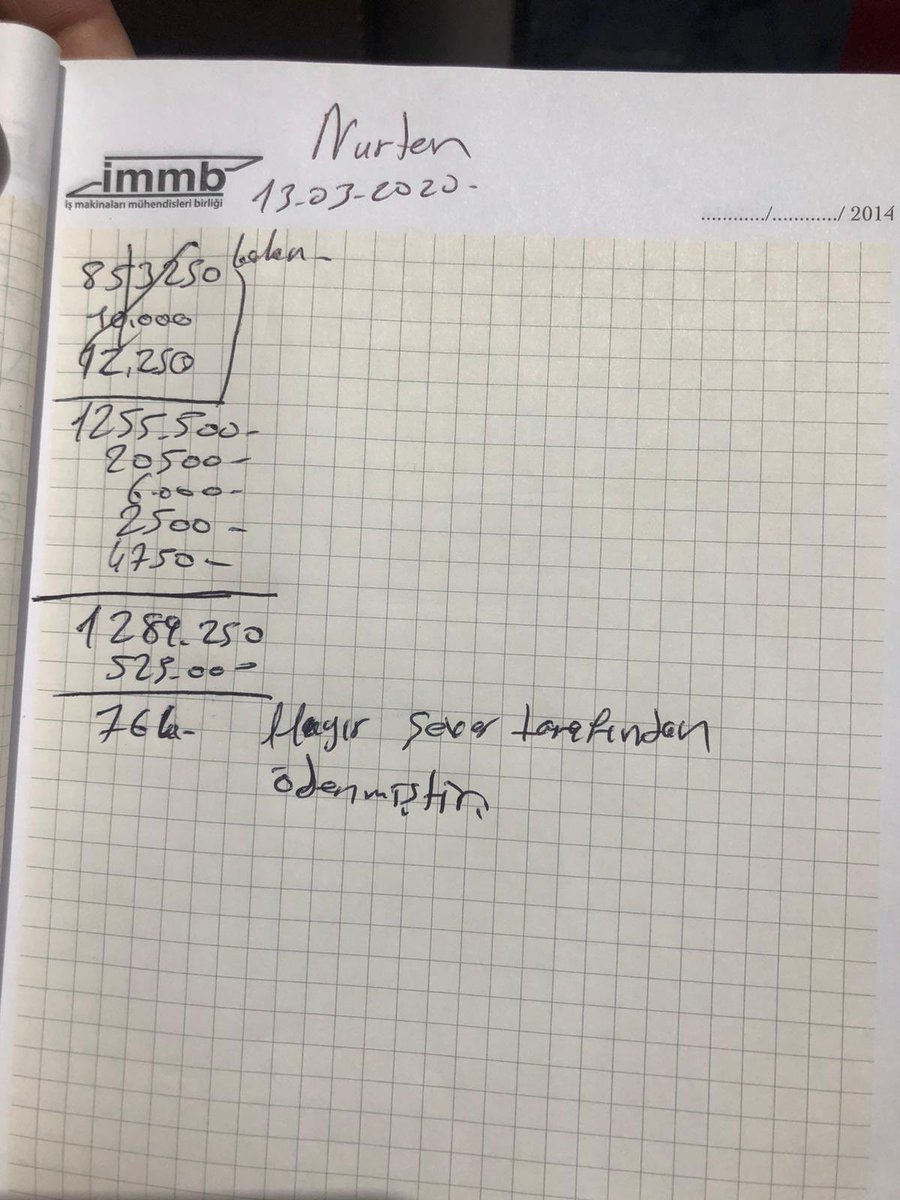 Nurten
immb
iş makinaları mühendisleri birliği
13-03-2020-
............/............/ 2014
853250
10.000
12.250
1255.500-
20500-
6.000-
2500-
4750-
1289.250
529.00-
Hayır Sever tarafından
ödenmiştir,